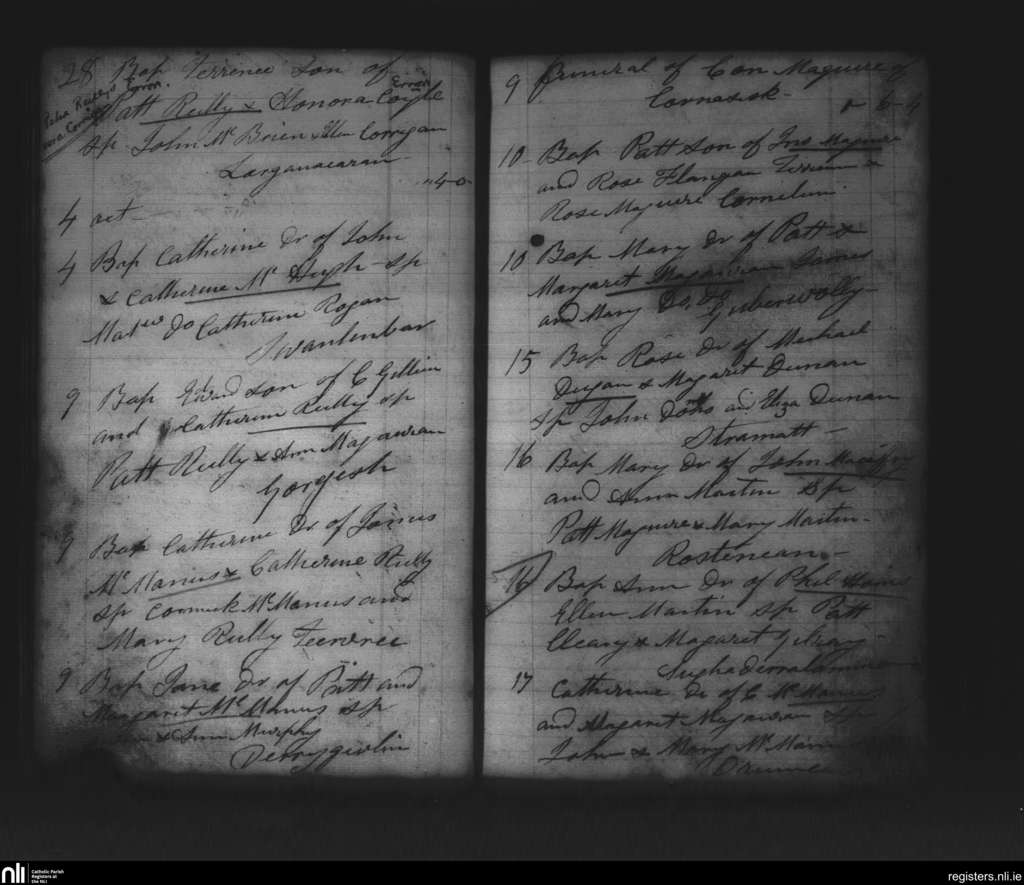 28 Bap Terrence son of
Patt Reilly & Honora Coyle
Error
Error.
sp. John Mc Brien & Ellen Corrigan
Larganacarran
"4-0-
4 ret
4 Bap Catherine Dr of John
& Catherine Mc Hugh - sp
Matw do Catherine Rogan
Swanlinbar
9 Bap Edward son of C Gillin
and Catherine Reilly sp
Patt Reilly & Ann Magauran
Gorgesh
9 Bap Catherine Dr of James
Mc Manus & Catherine Reilly
sp Cormick Mc Manus and
Mary Reilly
9 Bap Jane Dr of Patt and
Margaret Mc Manus sp
& Ann Murphy
Derryginlin
9 funeral of Con Maguire of
Cornasok -
6-4
10 Bap Patt Son of Jno Maguire
and Rose Flangan
Rose Maguire Cornelun.
10 Bap Mary Dr of Patt &
Margaret Magauran James
and Mary Do.
Guberwolly
15 Bap Rose Dr of Michael
Dugan & Magaret Dunan
sp John and Eliza Dunan
Stramatt -
16 Bap Mary Dr of John
and Ann Martin sp
Patt Maguire & Mary Martin -
Rostenean -
16 Bap Ann Dr of Phil
Ellen Martin sp Patt
Cleary & Magaret
17 Catherine Dr of C Mc Manus
and Magaret Magauran sp
John & Mary Mc Manus
nli
Catholic Parish
Registers at
the NLI
registers.nli.ie